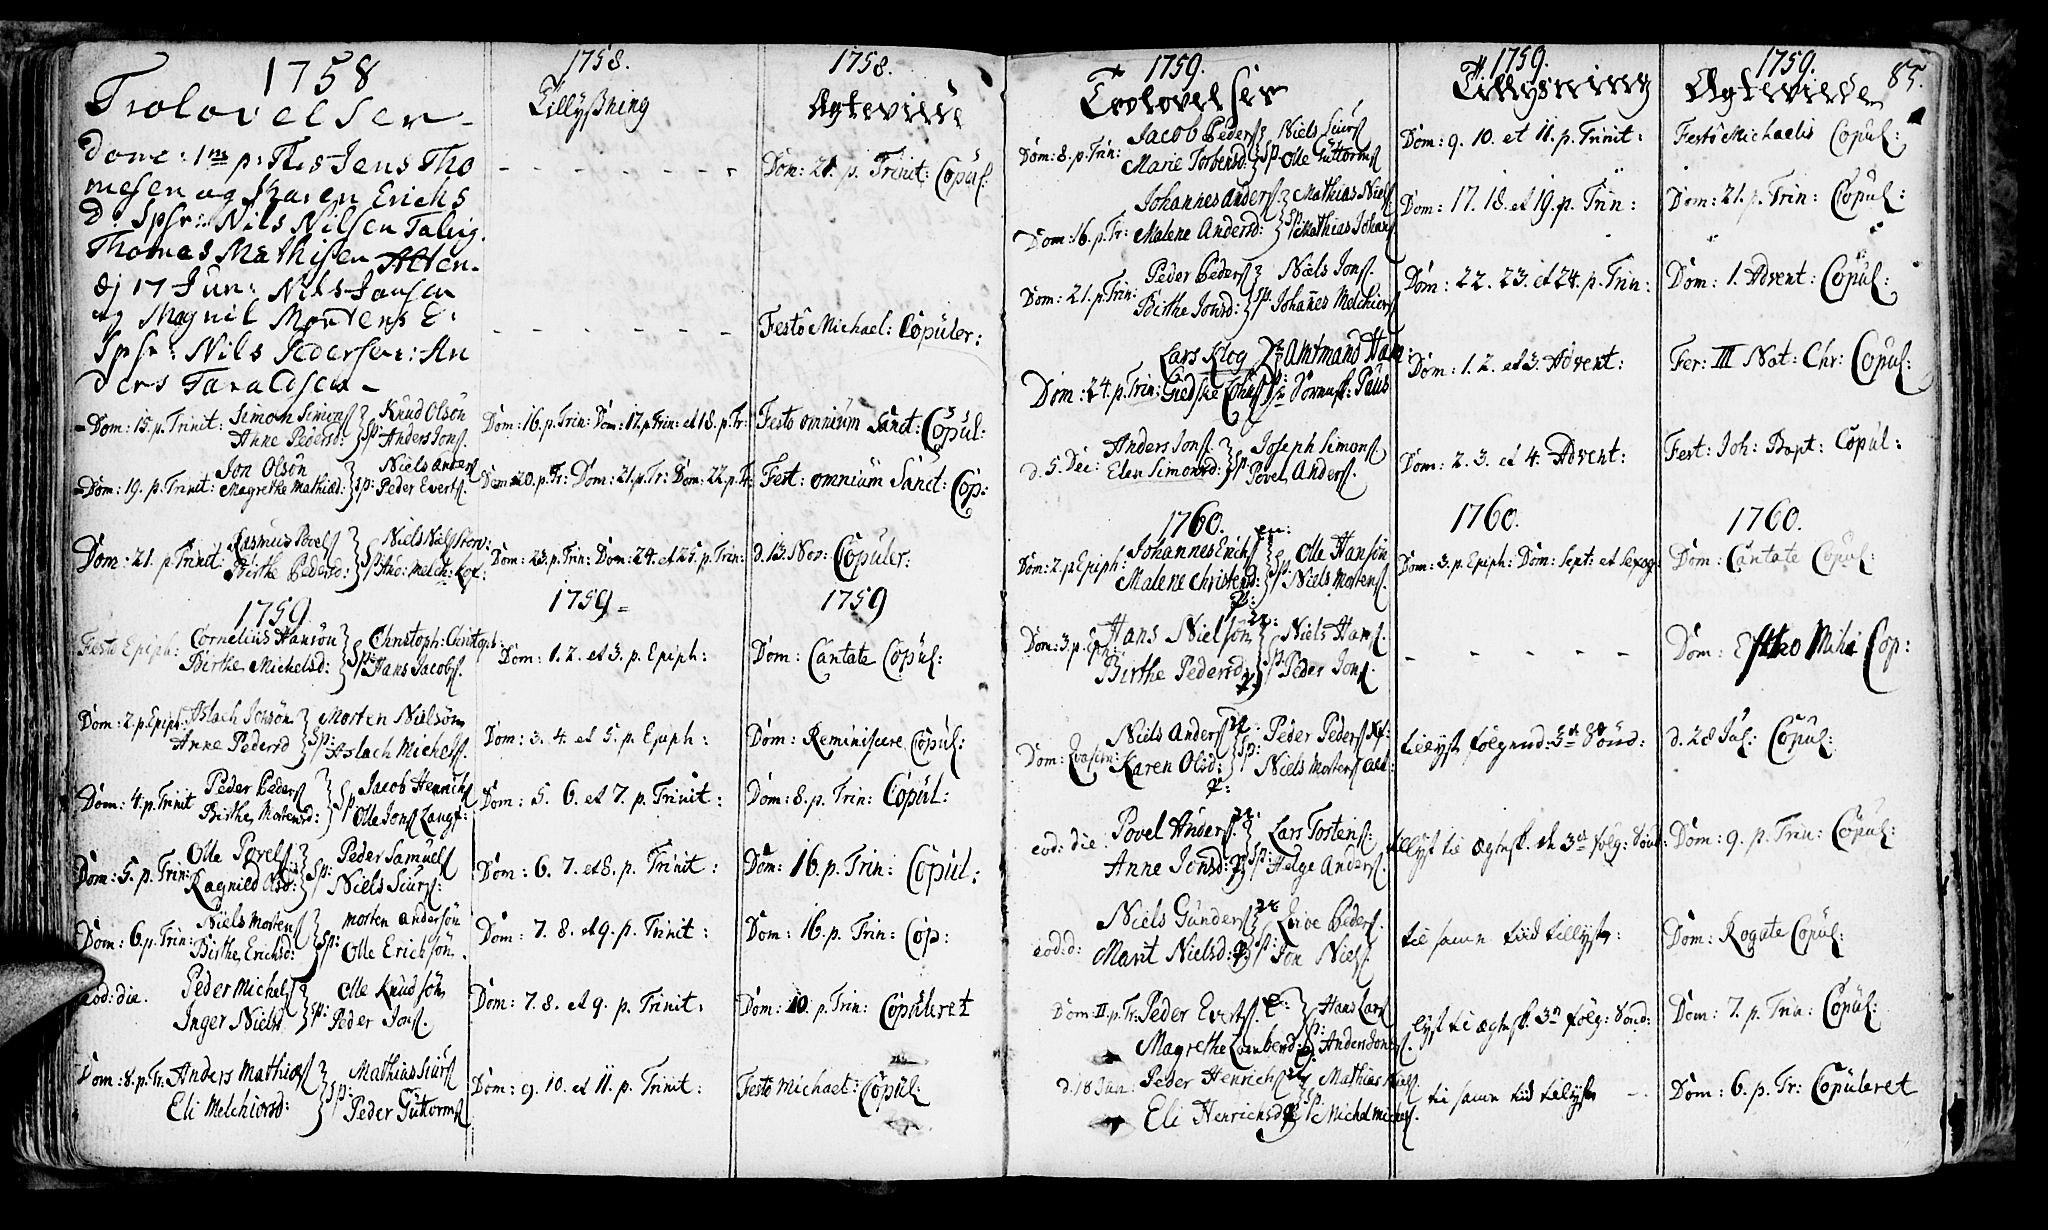 1758
Trolovelser
Dom: 1ma p: Tres Jens Tho
mesen og Karen Erichs
D. Spsr: Nils Nilsen Talvig.
Thomas Mathisen Alten.
dj 17 Jun: Nils Jansen
og Magnil Mortens D:
Spsr: Nils Pedersen: An
ders Taraldsen
Dom: 15. p. Trinit: Simon Simons Knud Olsön
Anne Pedersd: Sp: Anders Jons.
Dom: 19. p. Trinit: Jon Olsön Niels Anders
Magrethe Mathiæd: Sp: Peder Everts.
Dom: 21. p. Trinit: Rasmus Povels Niels Niels
Birthe Pedersd: Sp
1759
Festo Epiph: Cornelius Hansön Christoph: Christoph:
Birthe Michelsd: Sp: Hans Jacobs.
Dom: 2. p. Epiph: Aslach Jonsön Morten Nielsön
Anne Pedersd Sp: Aslach Michels.
Dom: 4. p. Trinit Peder Peders Jacob Henrichs
Birthe Mortensd: Sp Olle Jons
Dom: 5. p. Trin: Olle Povels Peder Samuels
Ragnild Olsd: Sp: Niels Siurs:
Dom: 6. p. Trin: Niels Mortens Morten Andersön
Birthe Erichsd: Sp: Olle Erichsön.
eod: die. Peder Michels Olle Knudsön
Inger Niels Sp: Peder Jons.
Dom: 8. p. Tr: Anders Mathiæs Mathias Siurs
Eli Melchiorsd: Sp: Peder Guttorms
1758.
Tillyßning
- - - - - - -
- - - - - -
Dom: 16. p. Trin: Dom: 17. p. Trin: et 18. p. Tr:
Dom: 20. p. Tr: Dom: 21. p. Tr: Dom: 22. p. Tr:
Dom: 23. p. Trin: Dom: 24. et 25. p. Trin:
1759
Dom: 1. 2. et 3. p. Epiph:
Dom: 3. 4. et 5. p. Epiph:
Dom: 5. 6. et 7. p. Trinit:
Dom: 6. 7. et 8. p. Trinit:
Dom: 7. 8. et 9. p. Trinit:
Dom: 7. 8. et 9. p. Trinit:
Dom: 9. 10. et 11. p. Trinit:
1758.
Ægtevielse
Dom: 21. p. Trinit: Copul:
Festo Michael: Copuler:
Festo omnium Sanct: Copul:
Fest: omnium Sanct: Cop:
d. 13 Nov: Copuler:
1759
Dom: Cantate Copul:
Dom: Reminiscere Copul:
Dom: 8. p. Trin: Copul:
Dom: 16. p. Trin: Copul:
Dom: 16. p. Trin: Cop:
Dom: 10. p. Trin: Copuleret
Festo Michael: Copul:
1759.
Trolovelser
Dom: 8. p. Trin: Jacob Peders Niels Siurs
Marie Torbensd: Sp: Olle Guttorms
Johannes Anders. Mathias Niels
Dom: 16. p. Tr: Malene Andersd: Sp: Mathias Johans
Peder Peders Niels Jons.
Dom: 21. p. Trin: Birthe Jonsd: Sp: Johannes Melchiors
Lars Klog Amtmand Ham:
Dom: 24. p. Trin: Giedske Sornsk. Paus
Anders Jons. Joseph Simons
d. 5. Dec: Elen Simonsd: Sp Povel Anders.
1760.
Dom: 2. p. Epiph: Johannes Erichs Olle Hansön
Malene Christensd: Sp: Niels Mortens.
Dom: 3. p. Eph: Hans Nielsön Niels Hans.
Birthe Pedersd: Sp: Peder Jons.
Niels Anders Peder Peders
Dom: Quasim: Karen Olsd: Sp: Niels Mortens
eod: die Povel Anders. Lars Tostens:
Anne Jonsd: Sp: Helge Anders.
Niels Gunders Peders.
eod: d: Marit Nielsd: Sp: Jon Niels.
Dom: II. p. Tr: Peder Everts. Hans Lars
Magrethe Sp: Anders Jons.
d. 18 Jun: Peder Henrichs Mathias Niels.
Eli Henrichsd Sp: Michel Michels.
1759.
Tillysning
Dom: 9. 10. et 11. p. Trinit:
Dom: 17. 18. et 19. p. Trin:
Dom: 22. 23. et 24. p. Trin:
Dom: 1. 2. et 3. Advent:
Dom: 2. 3. et 4. Advent:
1760.
Dom: 3. p. Epiph: Dom: Sept: et Sexag:
- - - - -
tillyst følgend: 3de Sönd:
tillyst til ægtesk. de 3de følg: Sönd:
til samme tiid tillyst:
lyst til ægtesk. 3de følg: Sönd:
til samme tiid tillyst
1759.
Ægtevielse
85.
Festo Michaelis Copul:
Dom: 21. p. Trin: Copul:
Dom: 1. Advent: Copul:
Fer: III Nat: Chr: Copul:
Fest: Joh: Bapt: Copul:
1760.
Dom: Cantate Copul:
Dom: Esto Mihi Cop:
d. 28 Jul: Copul:
Dom: 9. p. Trin: Copul:
Dom: Rogate Copul:
Dom: 7. p. Trin: Copul:
Dom: 6. p. Tr: Copuleret